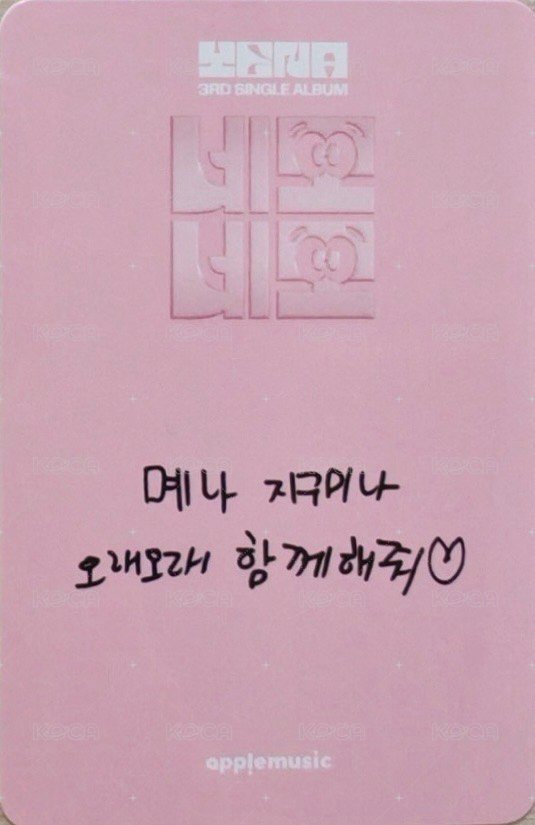 YENA
3RD SINGLE ALBUM
네모
네모
몌나 지구미나
오래오래 함께해줘♡
applemusic